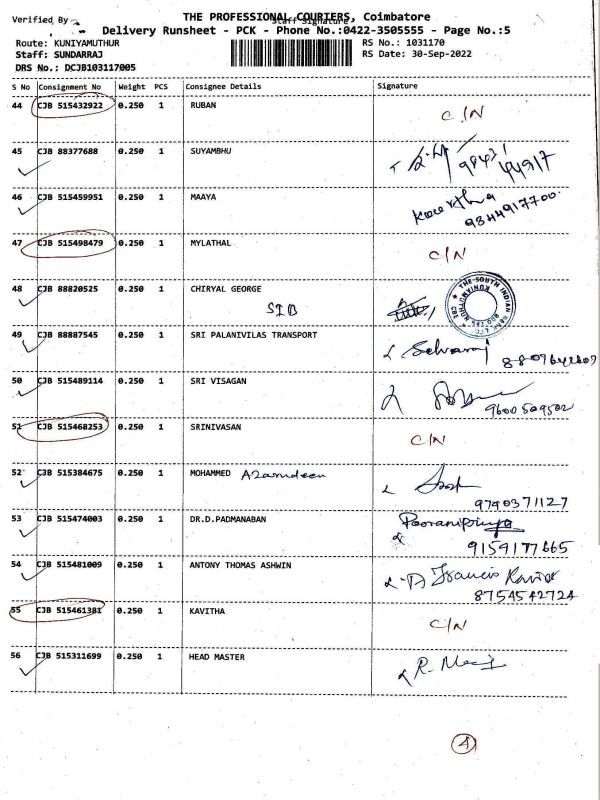 THE PROFESSIONAL COURIERS, Coimbatore
Verified By
Staff Signature
Delivery Runsheet - PCK - Phone No.:0422-3505555 - Page No.:5
Route: KUNIYAMUTHUR
RS No.: 1031170
Staff: SUNDARRAJ
RS Date: 30-Sep-2022
DRS No.: DCJB103117005
S No Consignment No Weight PCS Consignee Details Signature
44 CJB 515432922 0.250 1 RUBAN C/N
45 CJB 88377688 0.250 1 SUYAMBHU
46 CJB 515459951 0.250 1 MAAYA
9844917700
47 CJB 515498479 0.250 1 MYLATHAL C/N
48 CJB 88820525 0.250 1 CHIRYAL GEORGE
SIB
THE SOUTH INDIAN BANK LTD.
49 CJB 88887545 0.250 1 SRI PALANIVILAS TRANSPORT Selvaraj
50 CJB 515489114 0.250 1 SRI VISAGAN
9600509502
51 CJB 515468253 0.250 1 SRINIVASAN
C/N
52 CJB 515384675 0.250 1 MOHAMMED Azarudeen
9790371127
53 CJB 515474003 0.250 1 DR.D.PADMANABAN Pooranipriya
9159177665
54 CJB 515481009 0.250 1 ANTONY THOMAS ASHWIN Francis
8754542724
55 CJB 515461381 0.250 1 KAVITHA
C/N
56 CJB 515311699 0.250 1 HEAD MASTER
4